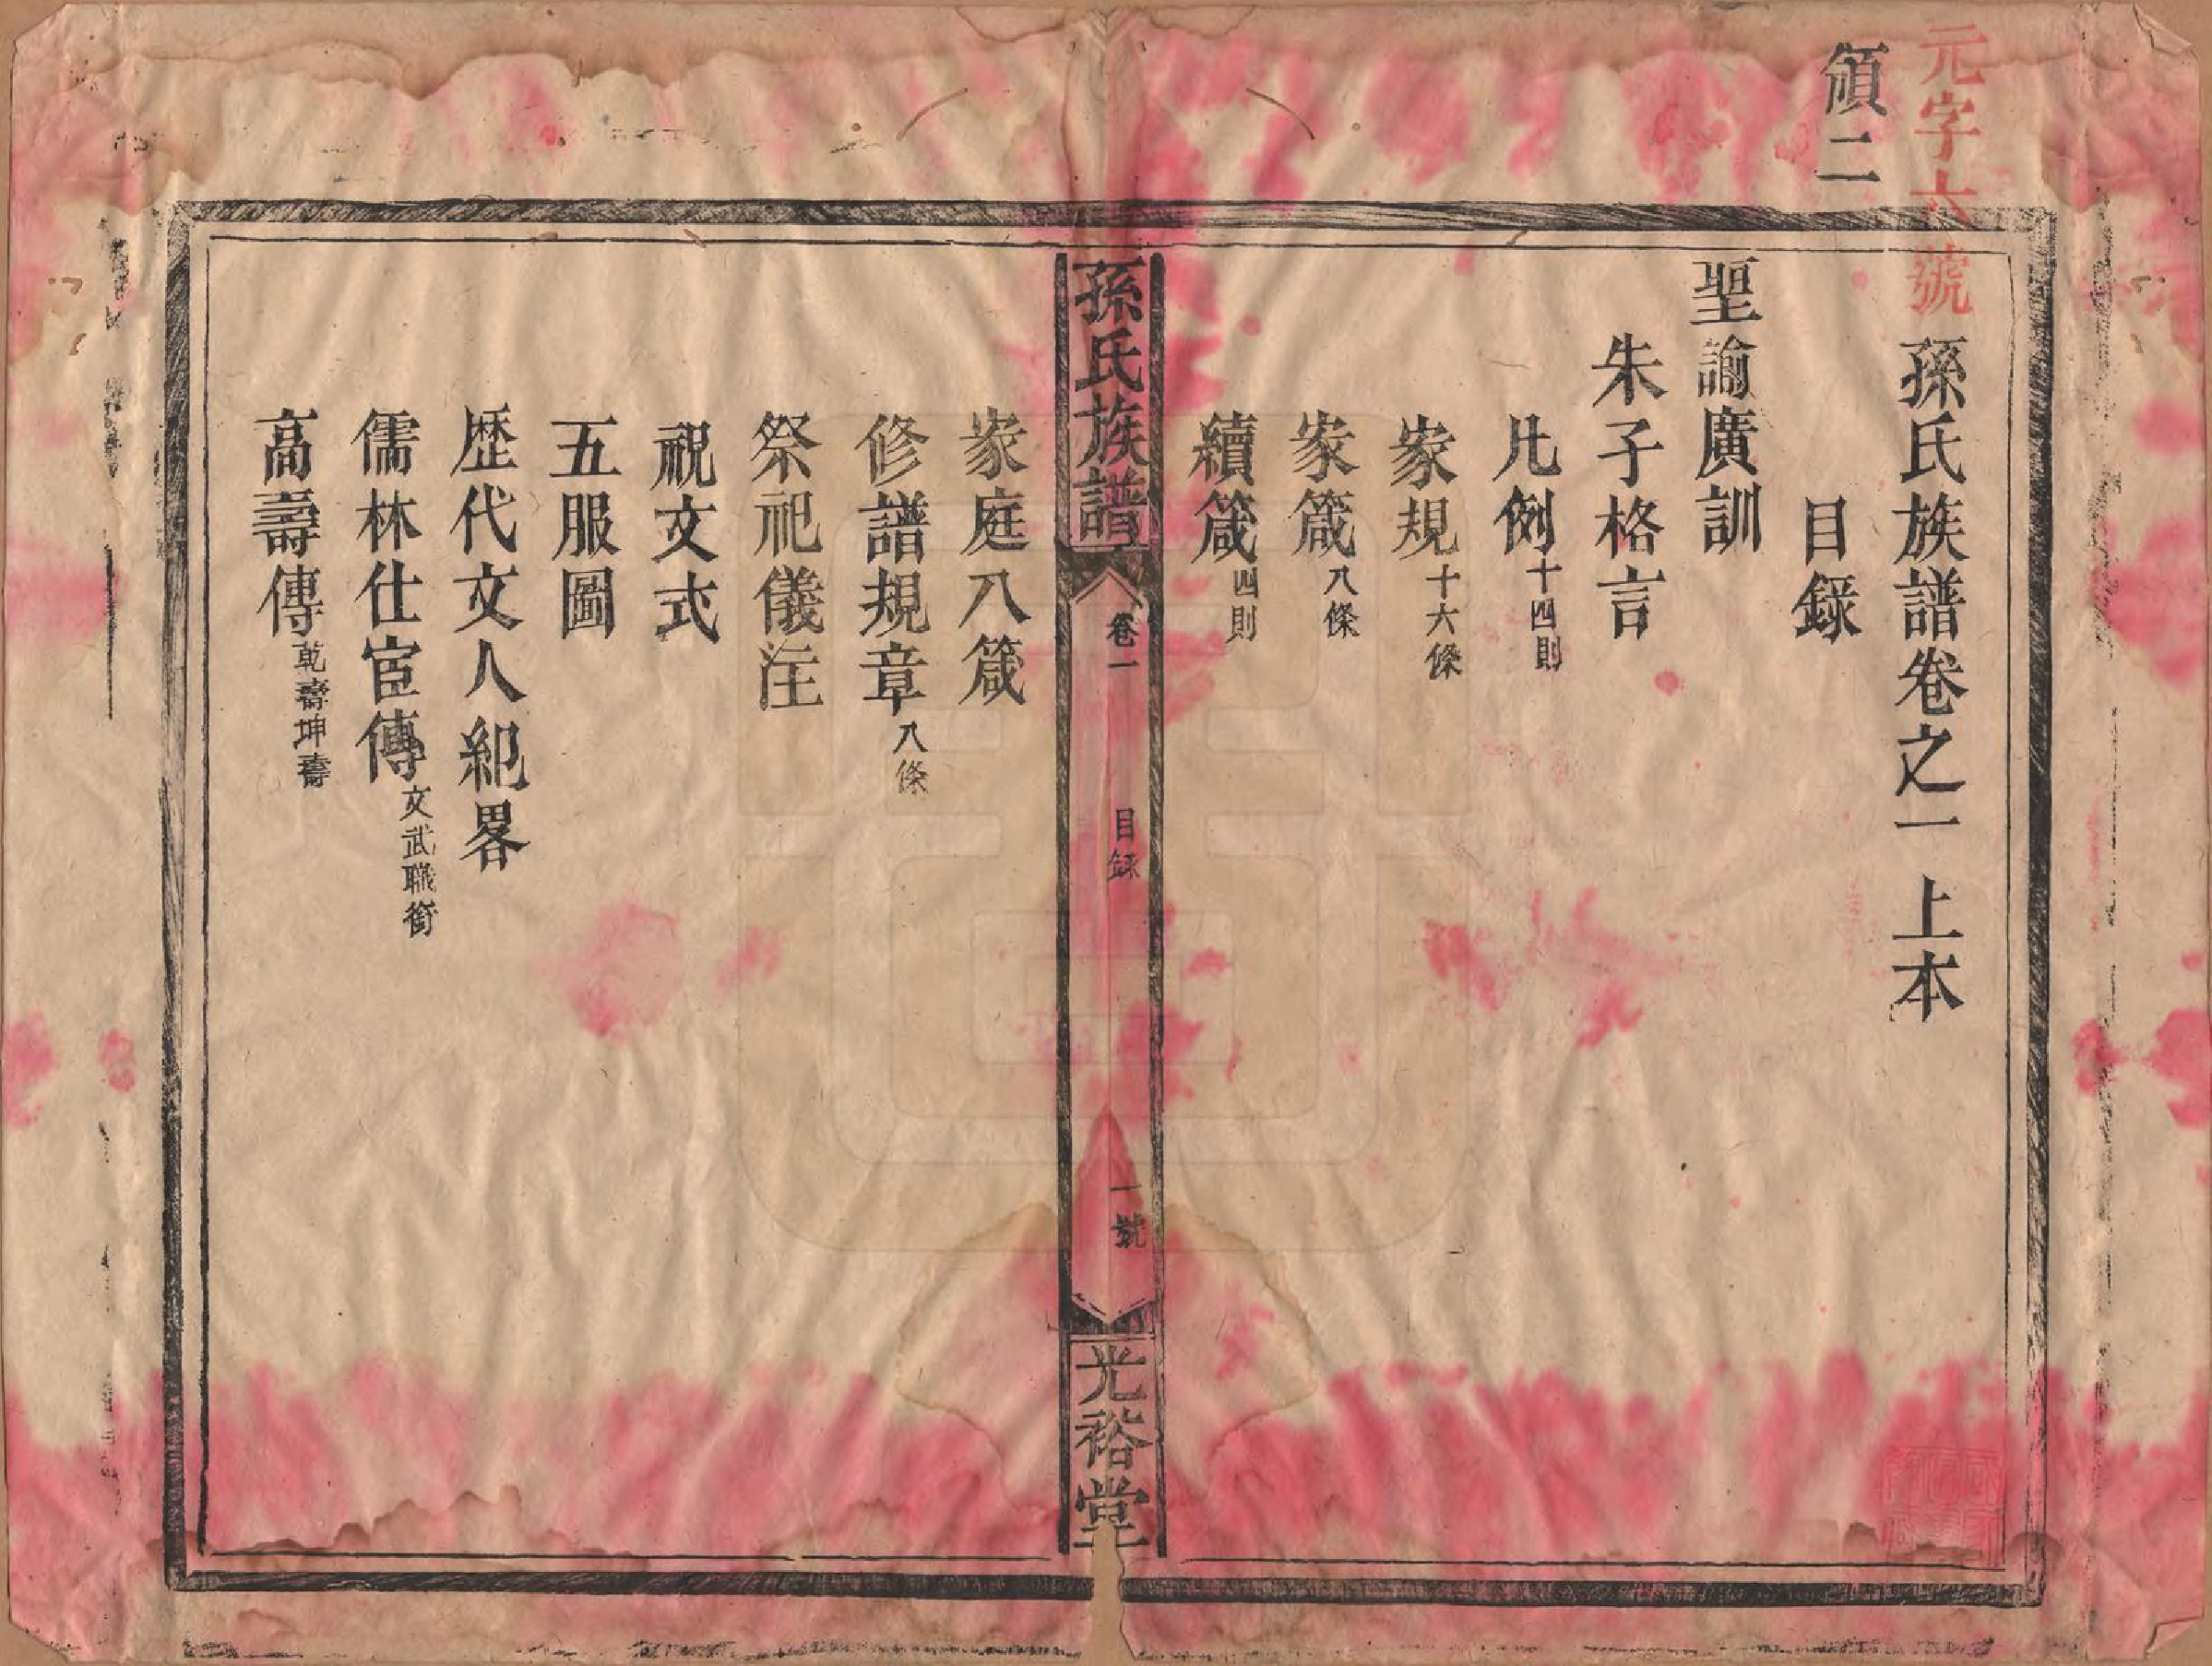 元字六號
頒二
孫氏族譜卷之一 上本
目錄
聖諭廣訓
朱子格言
凡例十四則
家規十六條
家箴八條
續箴四則
孫氏族譜 卷一 目錄 一號 光裕堂
家庭八箴
修譜規章八條
祭祀儀注
祝文式
五服圖
歷代文人紀畧
儒林仕宦傳文武職銜
高壽傳乾壽坤壽